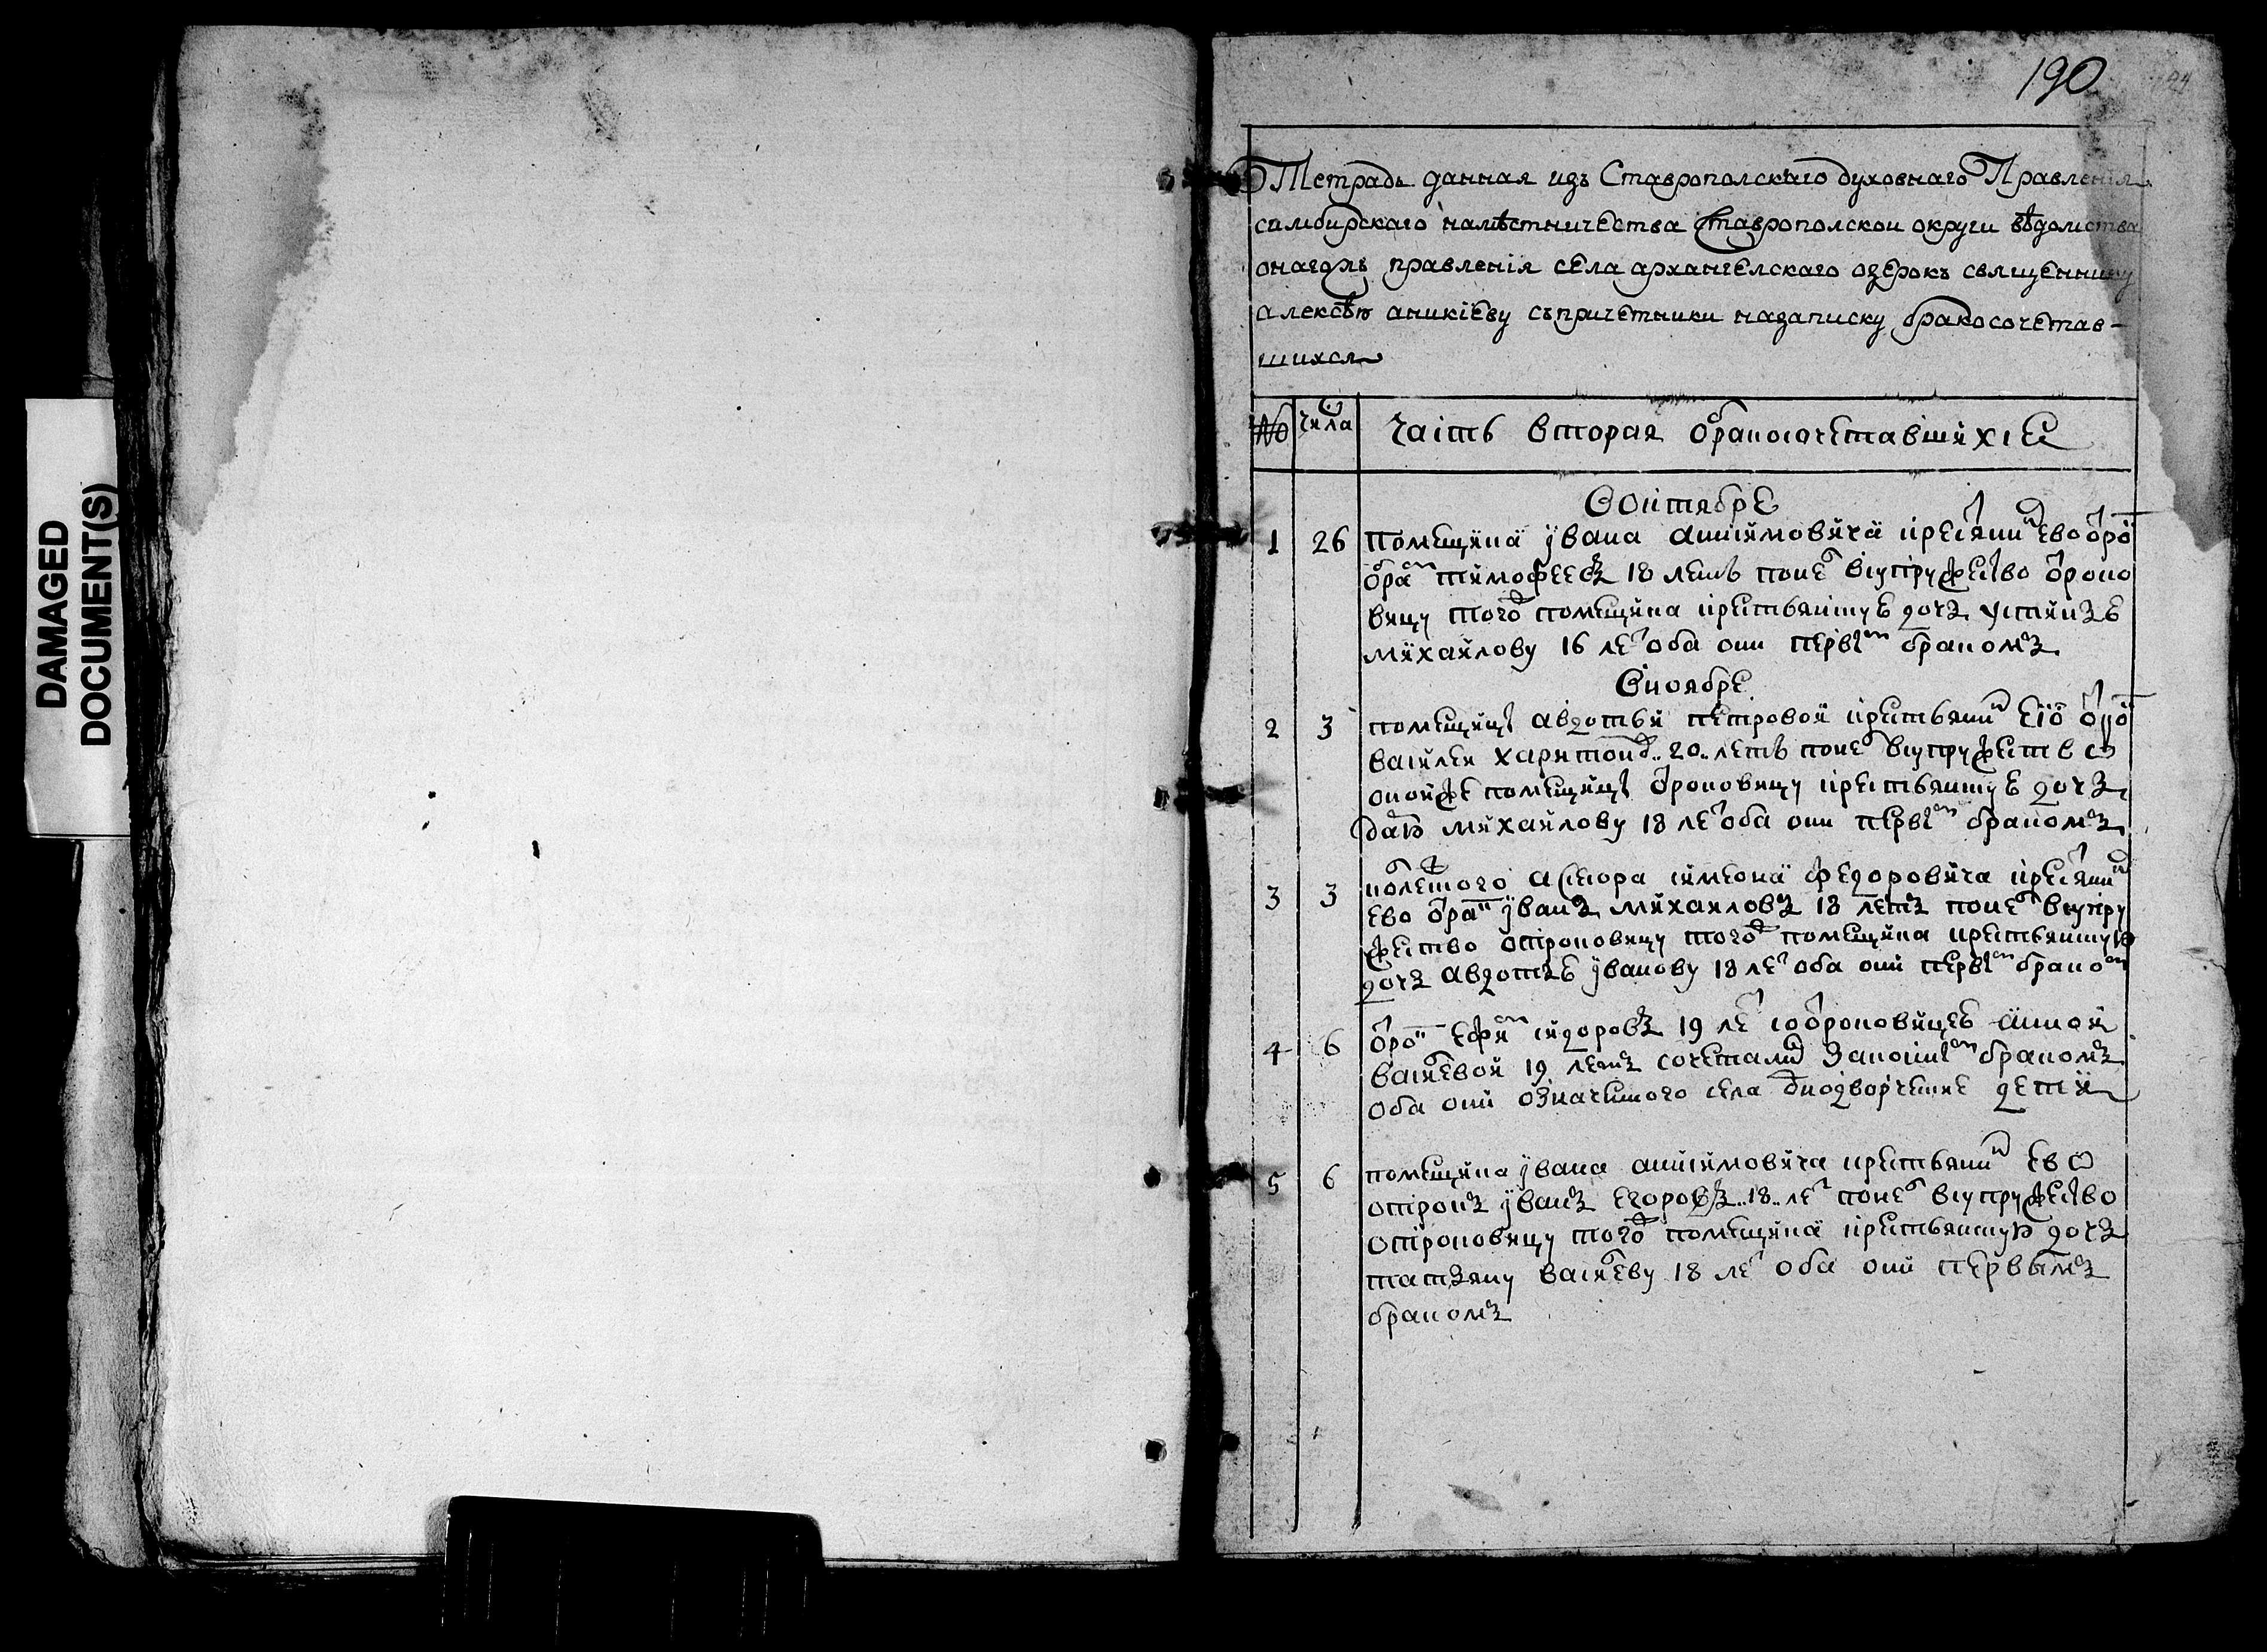 DAMAGED
DOCUMENT(S)
190
Тетрадь данная изъ Ставрополскаго духовнаго Правленія
симбирскаго намѣстничества Ставрополскои округи вѣдомства
онагожъ правленія села архангелскаго озерокъ священнику
алексѣю аникіеву съпричетники назаписку бракосочетав-
шихся
№ числа Часть вторая бракосочетавшихся
Воктябрѣ
1 26 помещика ивана анисимовича кресянинъ ево отро
тимофеевъ 18 летъ понелъ всупружество отроко
вицу тогожъ помещика крестьянскую дочь устинью
михаилову 16 летъ оба они первымъ бракомъ
Вноябрѣ
2 3 помещицы авдотьи петровой крестьянинъ ее отро
василеи харитоновъ 20 летъ понелъ всупружество
оной же помещицы отроковицу крестьянскую дочь
дарю михаилову 18 летъ оба они первымъ бракомъ
3 3 асесора симеона федоровича кресянинъ
ево иванъ михаиловъ 18 летъ понелъ всупру
жество отроковицу тогожъ помещика крестьянскую
дочь авдотью иванову 18 летъ оба они первымъ бракомъ
4 6 отрокъ ефимъ сидоровъ 19 летъ соотроковицею анной
васильевой 19 летъ сочетались законнымъ бракомъ
оба они означенного села однодворческие дети
5 6 помещика ивана анисимовича крестьянинъ ево
отрокъ иванъ егоровъ 18 летъ понелъ всупружество
отроковицу тогожъ помещика крестьянскую дочь
татьяну васильеву 18 летъ оба они первымъ
бракомъ